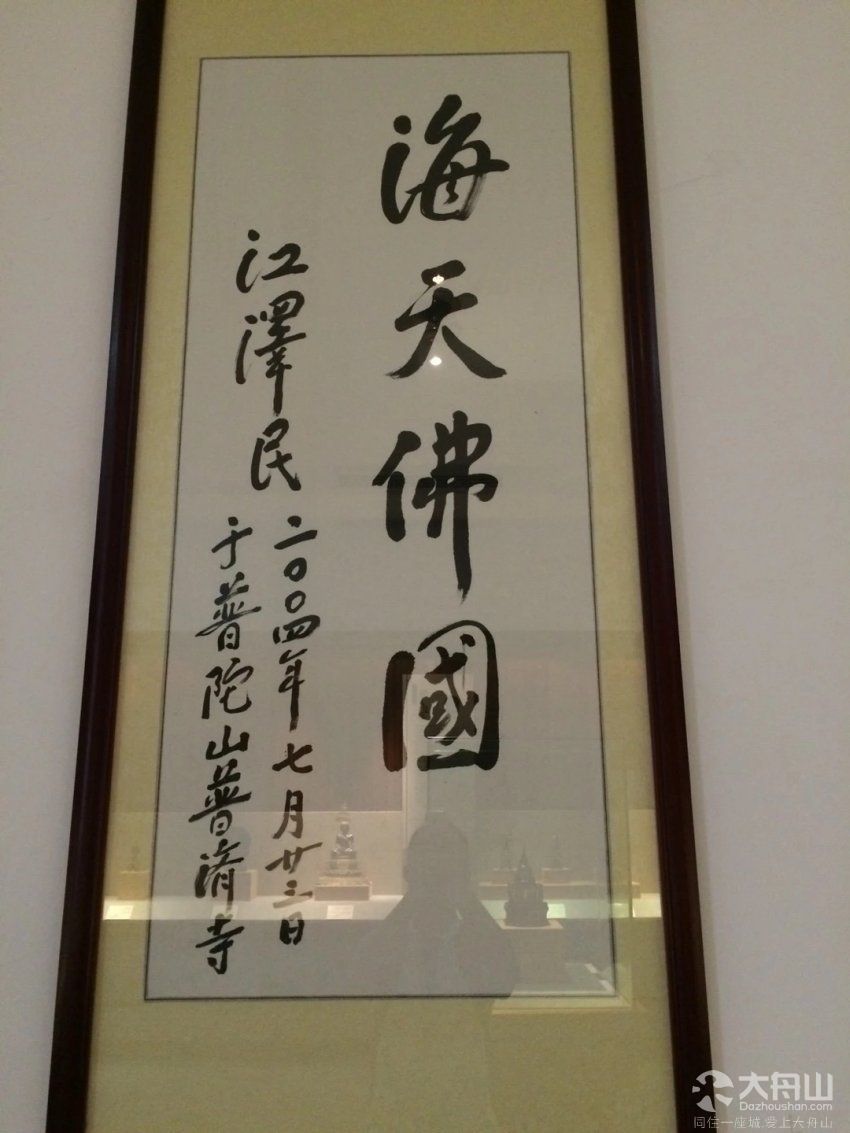 海天佛國
江澤民
二〇〇四年七月廿三日
于普陀山普濟寺
大舟山
Dazhoushan.com
同住一座城.爱上大舟山